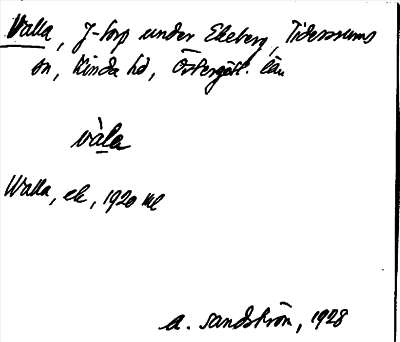 Valla, J-torp under Ekeberg, Tidersrums
sn, Kinda hd, Östergötl. län
vàla
Walla, ek, 1920 kl
A. Sandström, 1928